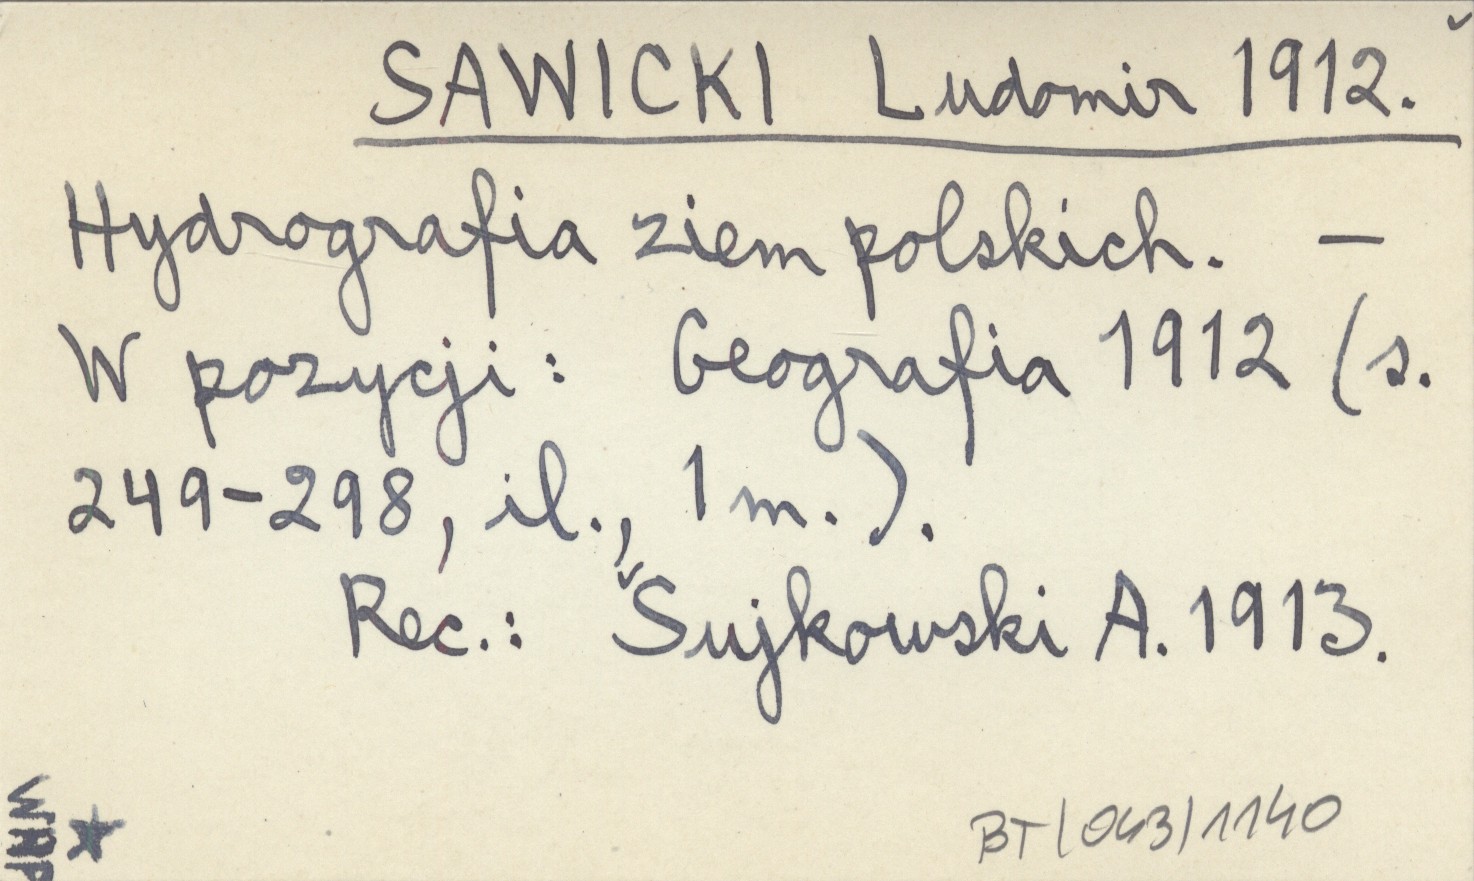 SAWICKI Ludomir 1912.
Hydrografia ziem polskich. –
W pozycji: Geografia 1912 (s.
249-298, il., 1 m.).
Rec.: Sujkowski A. 1913.
BT/043/1140
WAP